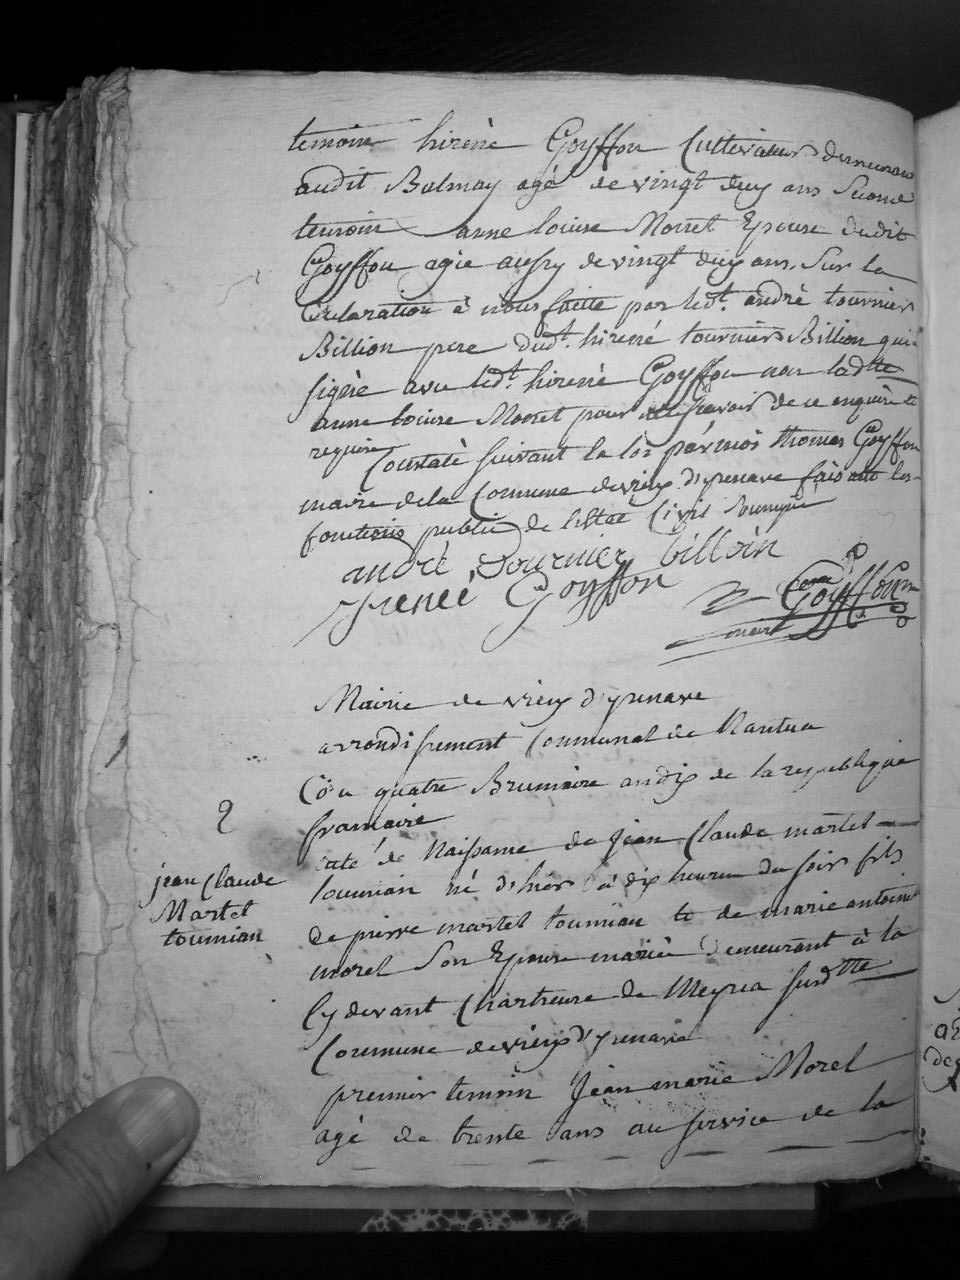 temoin hirènè Goyffon Cultivateur demeurant
audit Balmay agé de vingt deux ans Second
temoin anne louise Morret Epouse dudit
Goyffon agée aussy de vingt deux ans. Sur la
declaration à nous faitte par led.t andrè tournier
Billion pere dud.t hirené tournier Billion qui a
signè avec led.t hirené Goyffon non ladtte
anne louise Morret pour ne scavoir de ce enquire et
requise
Constatè suivant la loi par moi thomas Goyffon
maire de la Commune de vieux d'ysenave faisant les
fonctions public de l'état Civil Soussigné
andré Tournier billoin
Jrenéé Goyffon
Goyffon
maire
Mairie de vieux d'ysenave
arrondissement Communal de Nantua
Du quatre Brumaire an dix de la republique
francaise
2
acte de Naissance de Jean Claude martel
jean Claude
Martel
tournian
tournian né d'hier à dix heures du soir fils
de pierre martel tournian et de marie antoinet
morel Son Epouse mariés Demeurant à la
Cy devant Chartreuse de Meyria surdtte
Commune de vieux d'ysenave
premier temoin Jean marie Morel
agé de trente ans au service de la